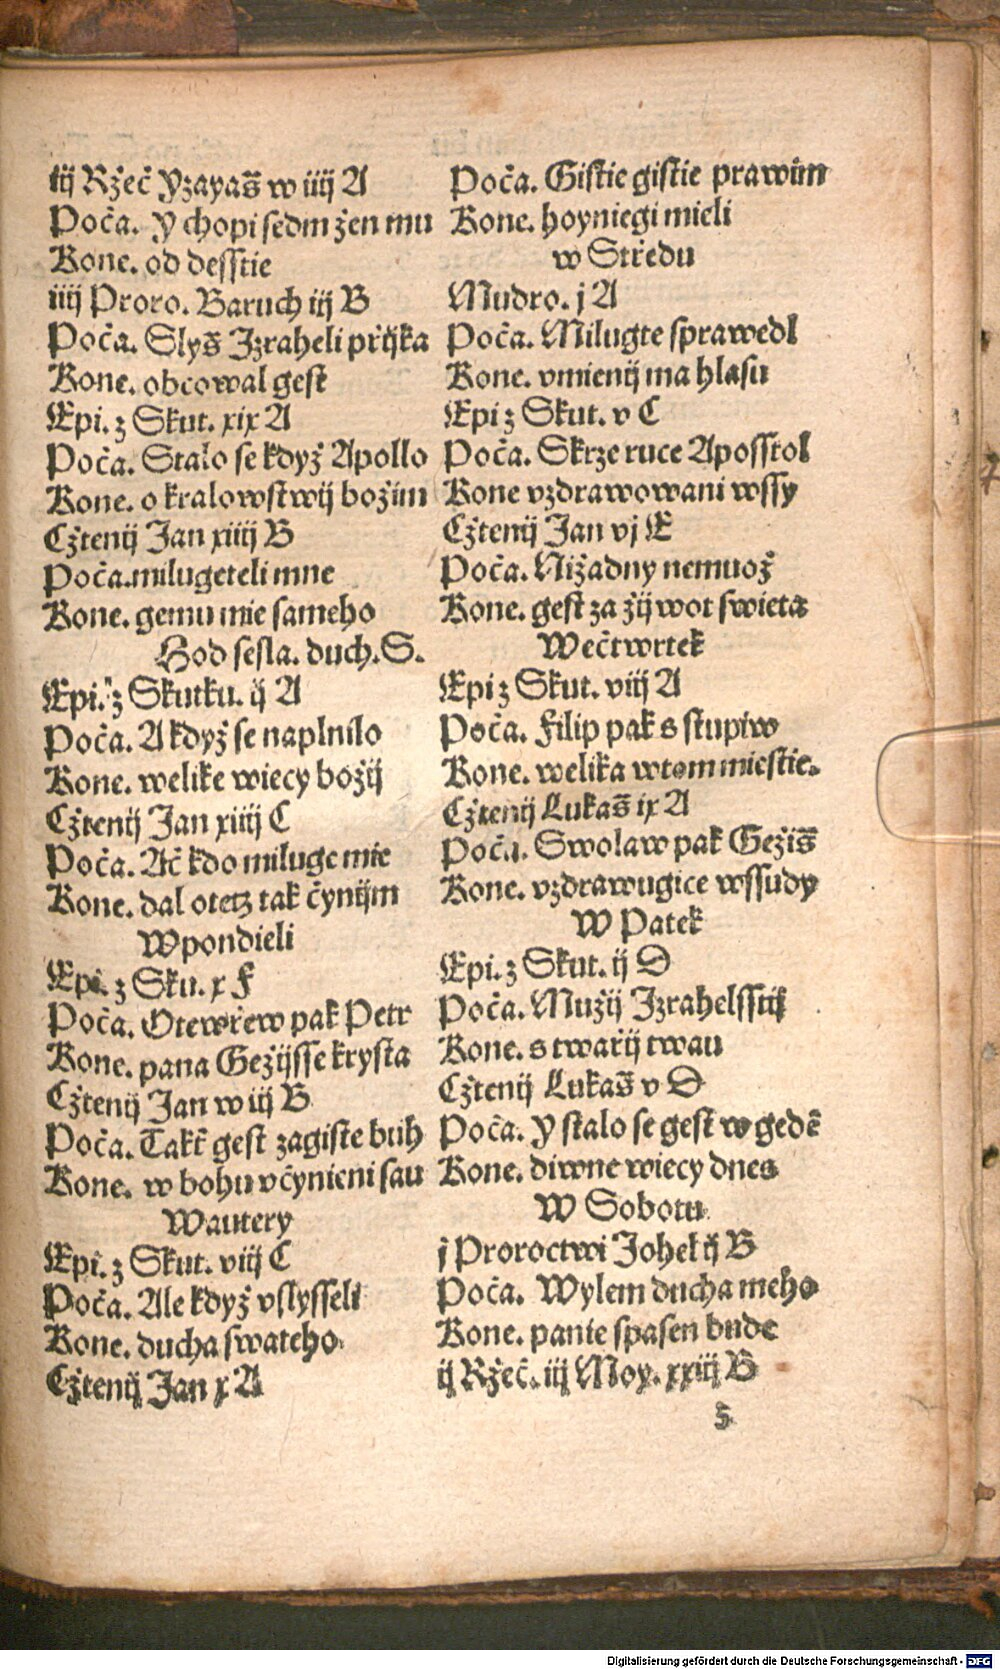 iij Rżeč Yzayaš w iiij A
Poča. Y chopi sedm żen mu
Kone. od desstie
iiij Proro. Baruch iij B
Poča. Slyš Izraheli přijka
Kone. obcowal gest
Epi. z Skut. xix A
Poča. Stalo se kdyż Apollo
Kone. o kralowstwij bożim
Cżtenij Jan xiiij B
Poča. milugeteli mne
Kone. gemu mie sameho
Hod sesla. duch. S.
Epi. z Skutku. ij A
Poča. A kdyż se naplnilo
Kone. welike wiecy bożij
Cżtenij Jan xiiij C
Poča. Ač kdo miluge mie
Kone. dal otetz tak čynijm
W pondieli
Epi. z Sku. x F
Poča. Otewřew pak Petr
Kone. pana Geżijsse krysta
Cżtenij Jan w iij B
Poča. Takť gest zagiste buh
Kone. w bohu včynieni sau
Wautery
Epi. z Skut. viij C
Poča. Ale kdyż vslysseli
Kone. ducha swateho.
Cżtenij Jan x A
Poča. Gistie gistie prawim
Kone. hoyniegi mieli
w Středu
Mudro. j A
Poča. Milugte sprawedl
Kone. vmienij ma hlasu
Epi z Skut. v C
Poča. Skrze ruce Aposstol
Kone vzdrawowani wssy
Cżtenij Jan vj E
Poča. Niżadny nemuoż
Kone. gest za żijwot swieta
Wečtwrtek
Epi z Skut. viij A
Poča. Filip pak s stupiw
Kone. welika w tom miestie.
Cżtenij Lukaš ix A
Poča. Swolaw pak Geżiš
Kone. vzdrawugice wssudy
W Patek
Epi. z Skut. ij D
Poča. Mużij Izrahelsstij
Kone. s twařij twau
Cżtenij Lukaš v D
Poča. Y stalo se gest w gedē
Kone. diwne wiecy dnes
W Sobotu
j Proroctwi Johel ij B
Poča. Wylem ducha meho
Kone. panie spasen bude
ij Rżeč. iij Moy. xxiij B
s
Digitalisierung gefördert durch die Deutsche Forschungsgemeinschaft - DFG